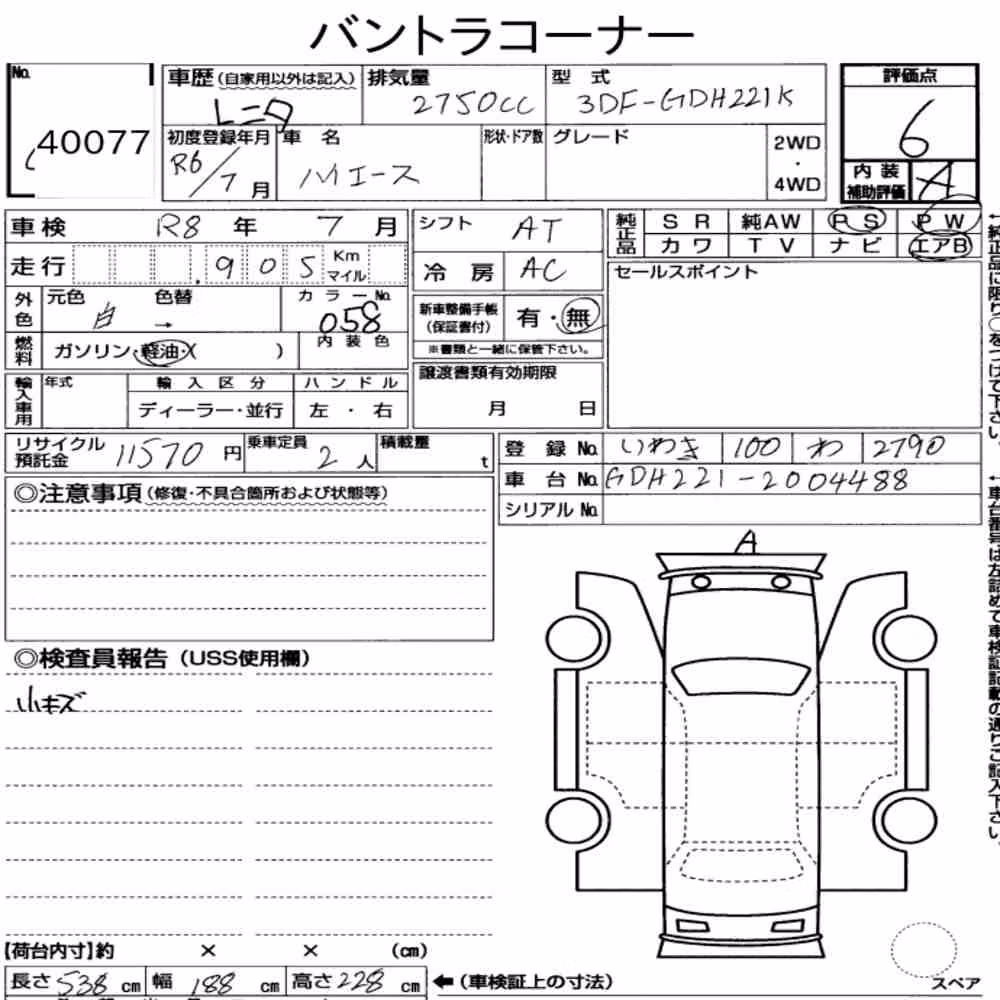 バントラコーナー
No. 40077
車歴(自家用以外は記入) 排気量 2750cc 型式 3DF-GDH221K 評価点 6
初度登録年月 R6/7月 車名 ハイエース 形状・ドア数 グレード 2WD・4WD 内装補助評価 A
車検 R8年 7月 シフト AT 純正品 SR 純AW PS PW
走行 905 Km マイル 冷房 AC カワ TV ナビ エアB
外色 元色 白 色替 → カラーNo. 058 新車整備手帳(保証書付) 有・無 セールスポイント
燃料 ガソリン・軽油・( ) 内装色 ※書類と一緒に保管下さい。
輸入車用 年式 輸入区分 ハンドル 譲渡書類有効期限
ディーラー・並行 左・右 月 日
リサイクル預託金 11570円 乗車定員 2人 積載量 t 登録No. いわき 100 わ 2790
車台No. GDH221-2004488
◎注意事項(修復・不具合箇所および状態等) シリアルNo.
A
◎検査員報告(USS使用欄)
小キズ
【荷台内寸】約 × × (cm)
長さ538cm 幅188cm 高さ228cm ←(車検証上の寸法) スペア
←純正品に限り○をつけて下さい。
←車台番号は左詰めで車検証記載の通りご記入下さい。